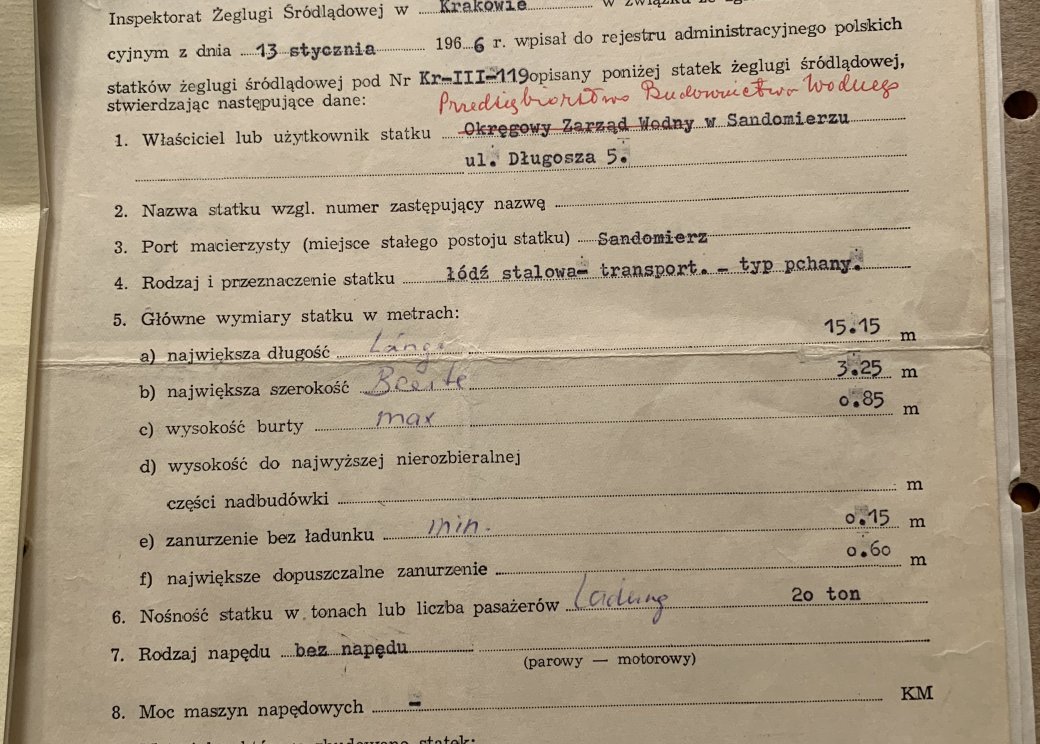 Inspektorat Żeglugi Śródlądowej w Krakowie w związku ze
cyjnym z dnia 13 stycznia 1966 r. wpisał do rejestru administracyjnego polskich
statków żeglugi śródlądowej pod Nr Kr-III-119 opisany poniżej statek żeglugi śródlądowej,
stwierdzając następujące dane:
Przedsiębiorstwo Budownictwa Wodnego
1. Właściciel lub użytkownik statku Okręgowy Zarząd Wodny w Sandomierzu
ul. Długosza 5.
2. Nazwa statku wzgl. numer zastępujący nazwę
3. Port macierzysty (miejsce stałego postoju statku) Sandomierz
4. Rodzaj i przeznaczenie statku łódź stalowa- transport. - typ pchany.
5. Główne wymiary statku w metrach:
a) największa długość Länge 15.15 m
b) największa szerokość Breite 3.25 m
c) wysokość burty max 0.85 m
d) wysokość do najwyższej nierozbieralnej
części nadbudówki m
e) zanurzenie bez ładunku min. 0.15 m
f) największe dopuszczalne zanurzenie 0.60 m
6. Nośność statku w tonach lub liczba pasażerów Ladung 20 ton
7. Rodzaj napędu bez napędu
(parowy — motorowy)
8. Moc maszyn napędowych - KM